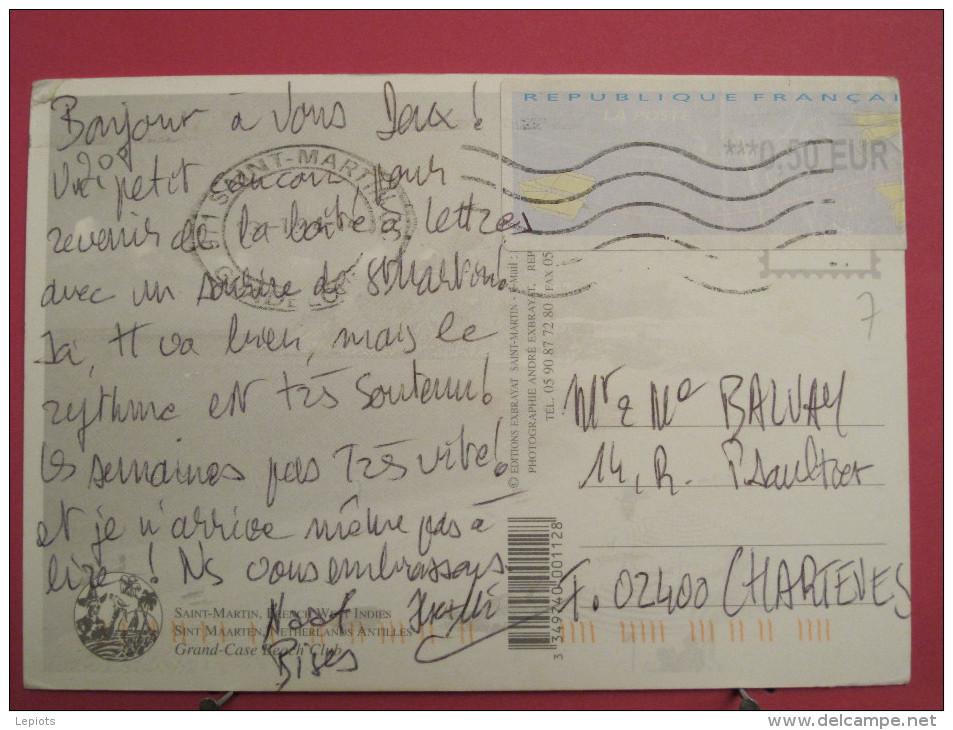 Bonjour à vous Deux!
Un petit coucou pour
revenir de la boîte à lettres
avec un sourire de St Martin!
Ici, tt va bien, mais le
rythme est très soutenu!
les semaines pas très vite!
et je n'arrive même pas à
lire! Ns vous embrassons.
Bises
REPUBLIQUE FRANÇAI
LA POSTE
***0,50 EUR
SAINT-MARTIN
© EDITIONS EXBRAYAT SAINT-MARTIN - E-Mail :
PHOTOGRAPHIE ANDRÉ EXBRAYAT, REP
TÉL. 05 90 87 72 80 - FAX 05
7
Mr & Me BALVAY
14, R. P. Saultier
F. 02400 CHARTEVES
3 349240 001128
SAINT-MARTIN, FRENCH WEST INDIES
SINT MAARTEN, NETHERLANDS ANTILLES
Grand-Case Beach Club
Lepiots
www.delcampe.net